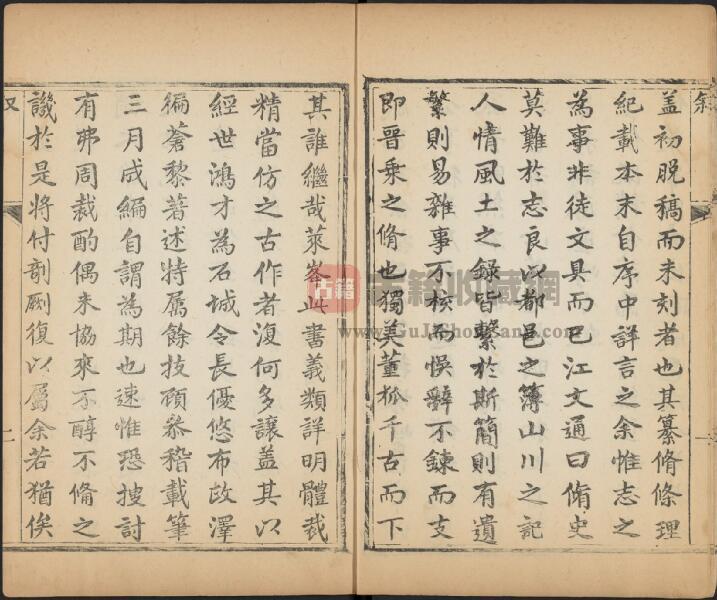 叙
盖初脱稿而未刻者也其纂脩條理
紀載本末自序中詳言之余惟志之
為事非徒文具而已江文通曰脩史
莫難於志良以都邑之簿山川之記
人情風土之録皆繫於斯簡則有遺
繁則易雜事不核而悞辭不鍊而支
即晋乗之脩也獨美董狐千古而下
一
其誰繼哉萊峯此書義類詳明體裁
精當仿之古作者復何多讓盖其以
經世鴻才為石城令長優悠布政澤
徧蒼黎著述特属餘技顧叅稽載筆
三月成編自謂為期也速惟恐搜討
有弗周裁酌偶未協來不醇不脩之
譏於是将付剞劂復以屬余若猶俟
二
古籍
古籍收藏網
www.GuJiShouCang.com